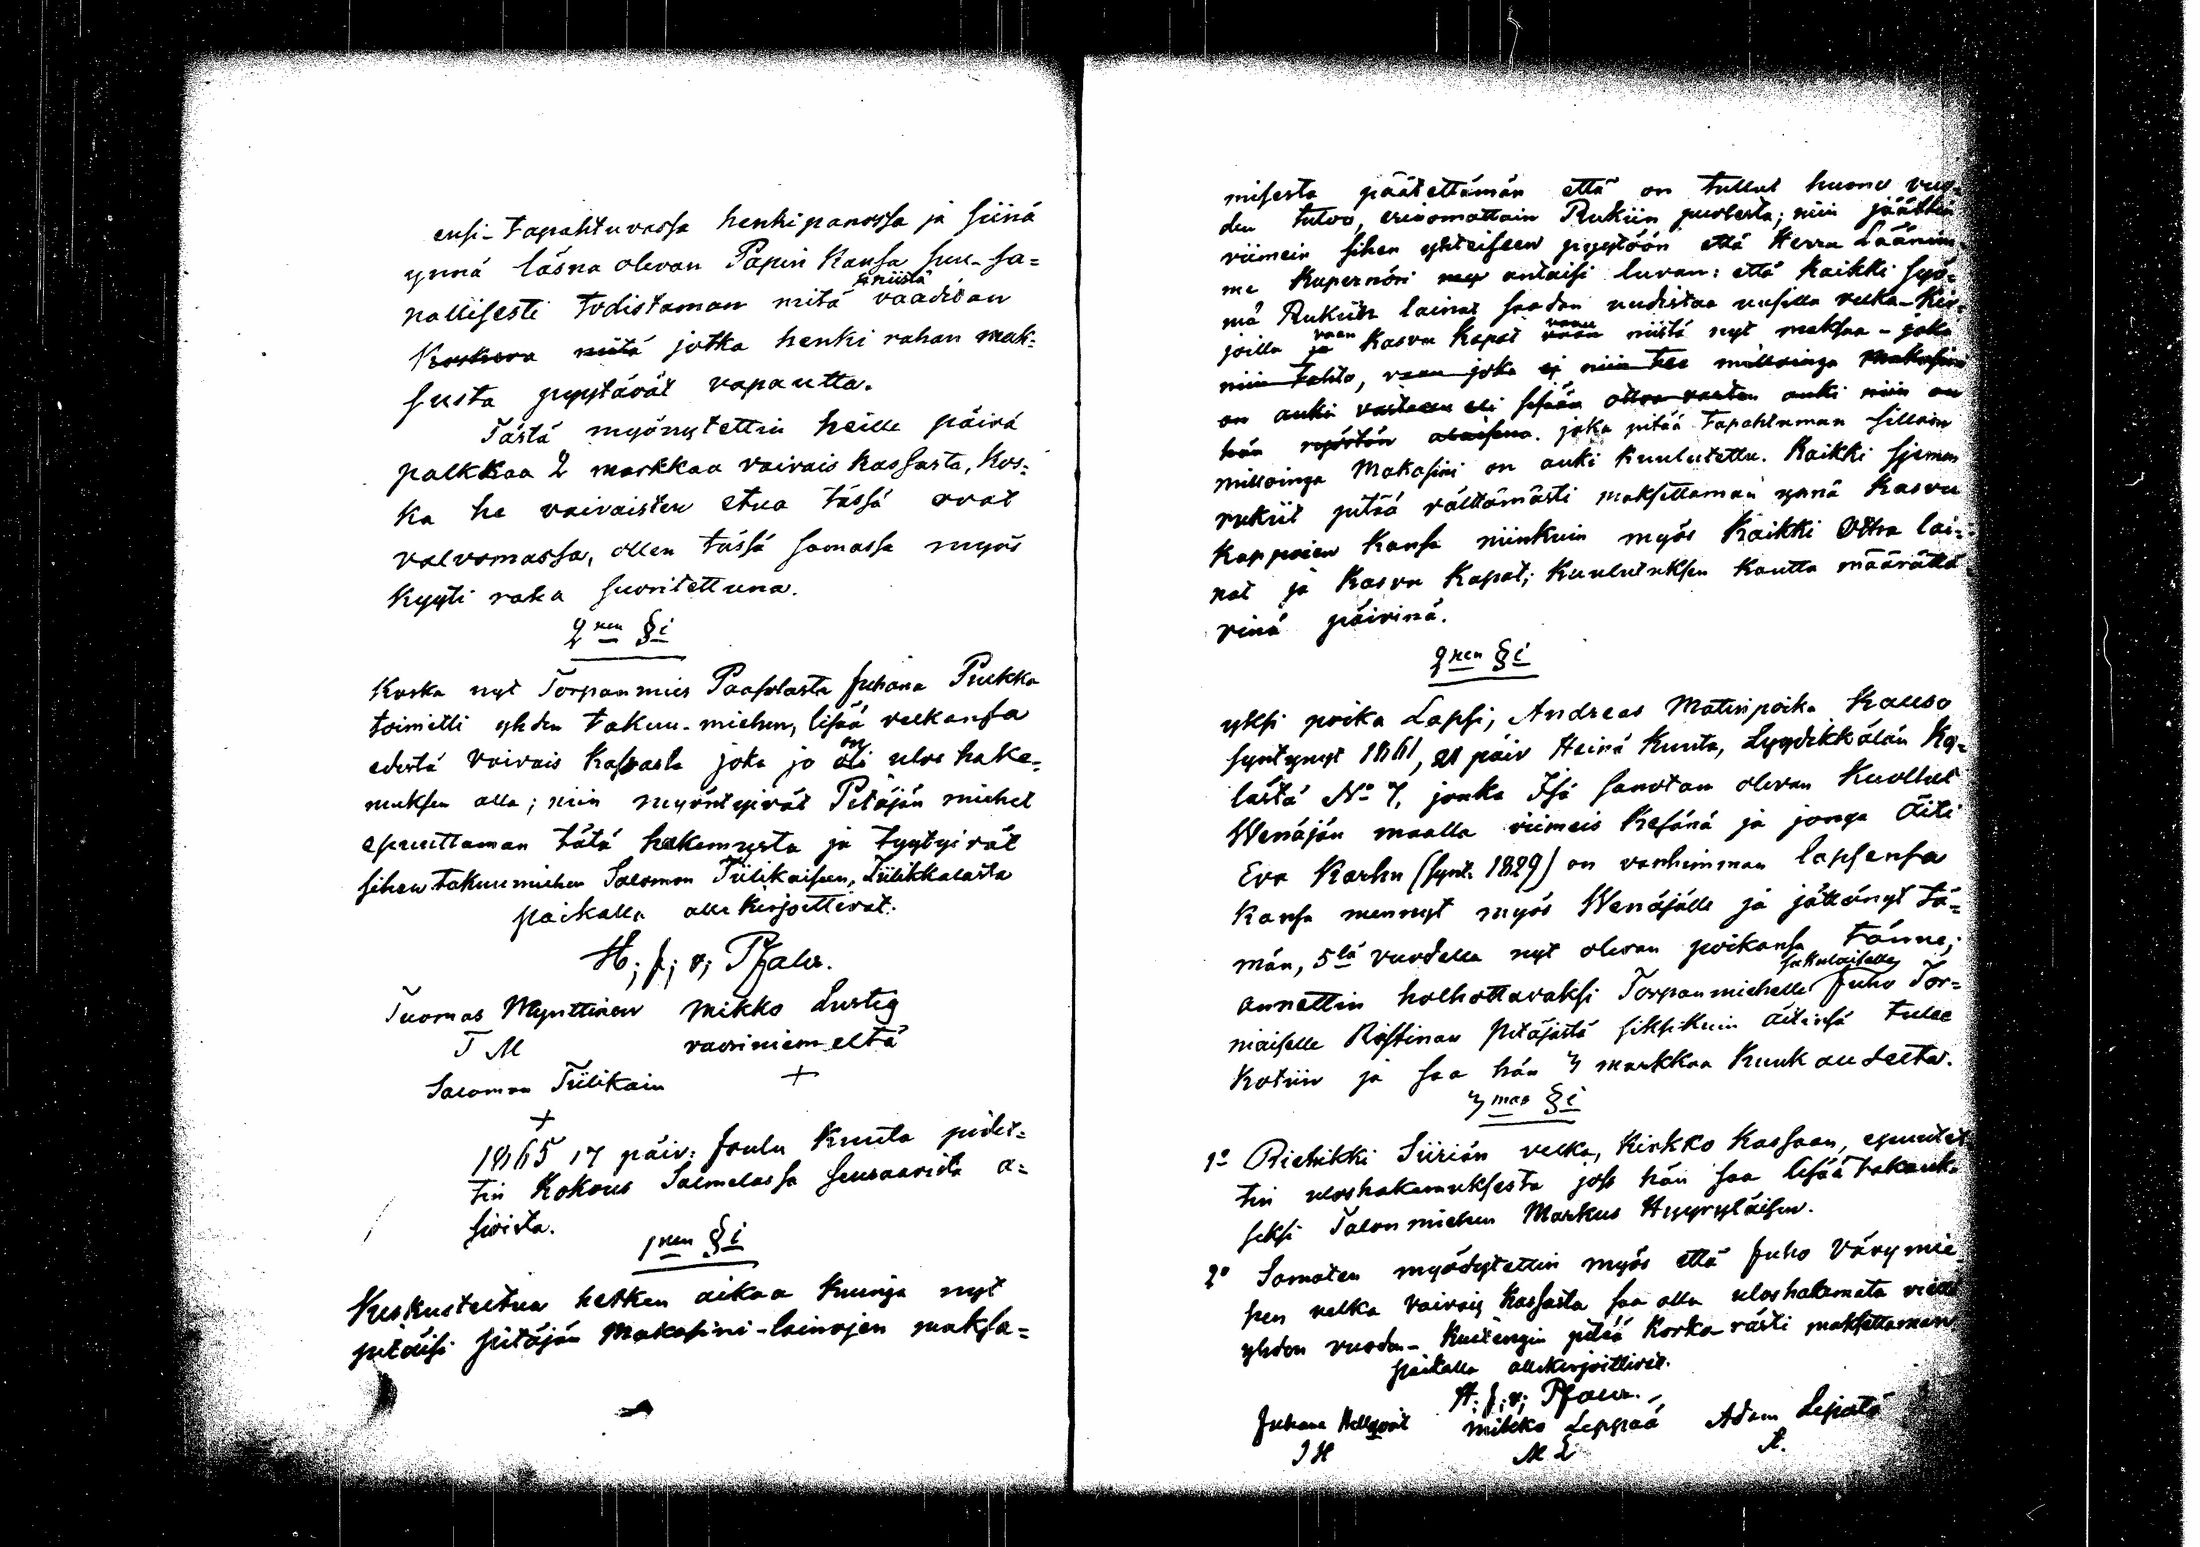 ensi-tapahtuvassa henkipanossa ja siinä
ynnä läsnä olevan Papin kansa suu-sa=
nallisesti todistaman mitä niistä vaaditan
Koskeva mitä jotka henki rahan mak=
susta pyytävät vapautta.
Tästä myönytettin heille päivä
palkkaa 2 markkaa vaivais kassasta, kos=
ka he vaivaisten etua tässä ovat
valvomassa, ollen tässä samassa myös
kyyti raha suoritettuna.
2nen §i
Koska nyt Torpanmies Paasolasta Juhana Pukka
toimitti yhden takuu-miehen, lisää velkansa
edestä vaivais kassasta joka jo on oli ulos hake=
muksen alla; niin myöntyivät Pitäjän miehet
epuuttaman tätä hakemusta ja tyytyivät
siihen takuumiehen Salomon Tiilikaisen, Tiilikkalasta
paikalla alle kirjoittivat:
H; f; v; Pfaler.
Tuomas Mynttinen Mikko Lustig
T M vaoriniemeltä
Salomon Tiilikain +
+
1865 17 päiv: Joulu Kuuta pidet=
tin Kokous Salmelassa seuraavista a=
sioista.
1nen §i
Keskusteltua hetken aikaa kuinga nyt
pitäisi pitäjän Makasini-lainojen maksa=
misesta päätettämän että on tullut huono vuo=
den tulvo, erinomattain Rukiin puolesta; niin jäättin
viimein siihen yhteiseen pyytöön että Herra Läänim=
me Kupernöri antaisi luvan: että kaikki syö=
mä Rukiin lainat saadan uudistaa uusilla velka-kir=
joilla ja vaan kasvu kapat vaan niistä nyt maksaa - joka
niin tahto, vaan joka ej niin tee milloinga Makasini
on auki vastaseen eli sisään ottoa vasten auki niin on
hän myöstän alaisena. joka pitää tapahtuman silloin
milloinga Makasini on auki kuulutettu. Kaikki sjemen
rukiit pitää välttämästi maksettaman ynnä kasvu
kappoien kansa niinkuin myös kaikki Ottra lai=
nat ja kasvu kapat; kuulutuksen kautta määrättä=
vinä päivinä.
2nen §i
yksi poika Lapsi, Andreas Matinpoika Kauso
syntynyt 1861, 21 päiv Heinä kuuta, Lyydikkälän Ky=
lästä No 7, jonka Isä sanotan olevan kuollut
Wenäjän maalla viimeis kesänä ja jonga Äiti
Eva Karhu (synt. 1829) on vanhimman lapsensa
kansa mennyt myös Wenäjälle ja jättänyt tä=
män, 5lä vuodella nyt olevan poikansa tänne;
annettin holhottavaksi Torpanmiehelle sukulaiselle Juho Tor=
niaiselle Ristinan Pitäjästä siksikuin äitinsä tulee
kotiin ja saa hän 3 markkaa kuukaudelta.
3mas §i
1o Rietrikki Siiriän velka, kirkko kassaan, epuutet=
tin uloshakemuksesta jos hän saa lisää takauk=
seksi Talonmiehen Markus Hyyrytäisen.
2o Samaten myödytettin myös että Juho Värymie=
sen velka vaivais kassasta saa olla uloshakemata vielä
yhden vuoden - kuitengin pitää korko-rästi maksettaman
paikalla allekirjoittivat.
H. f; v; Pfaler.
Juhana Hellqvist mikko Leppää Adam Lepistö
J H M L A.